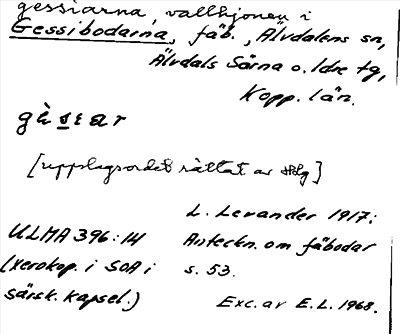 gessiarna, vallhjonen i
Gessibodarna, fäb., Älvdalens sn,
Älvdals Särna o. Idre tg,
Kopp. län.
gὲsιar
[upplagsordet rättat av Hlg]
L. Levander 1917:
ULMA 396:14 Anteckn. om fäbodar
(xerokop. i SOA i s. 53.
särsk. kapsel.)
Exc. av E.L. 1968.